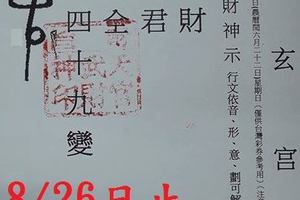 玄宮
日(農曆閏六月二十二日)星期日(僅供台灣彩券參考用)
財神示 行文依音、形、意、劃可解
財
君
全
四十九變
8/26日止